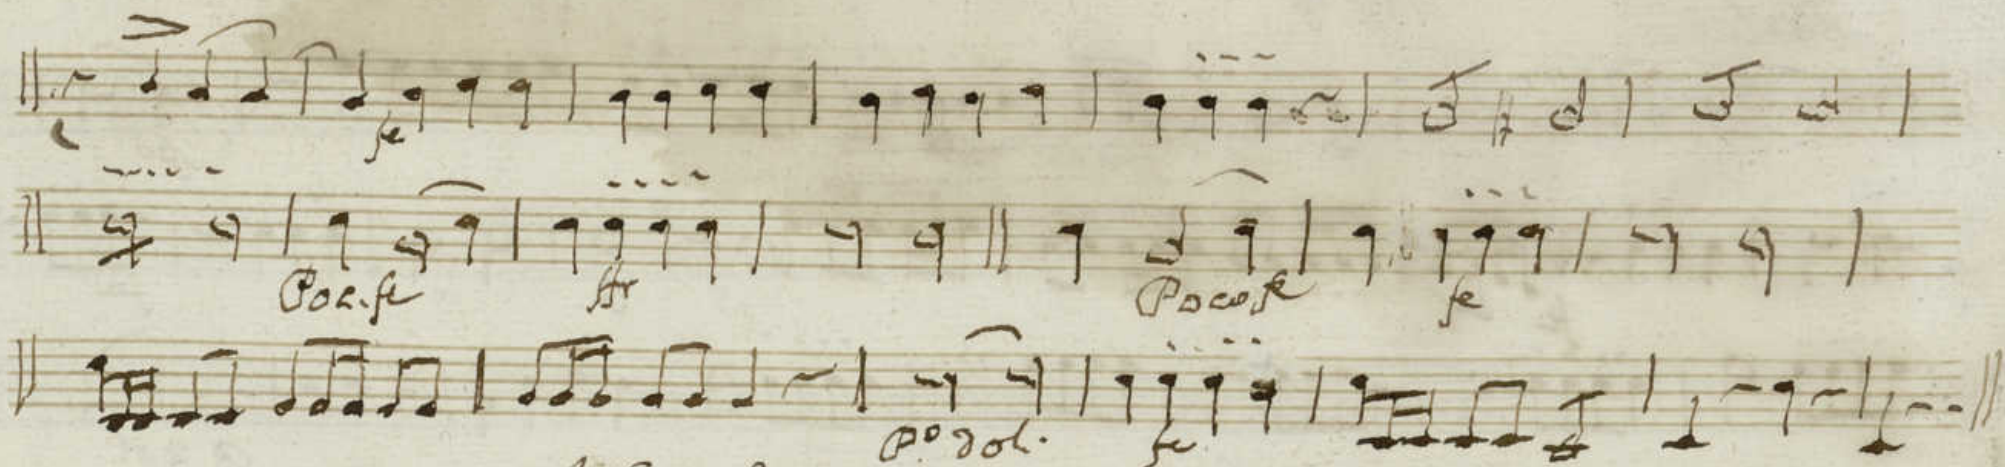 fe
Poc. fe ffr Poco fe fe
P.º dol. fe